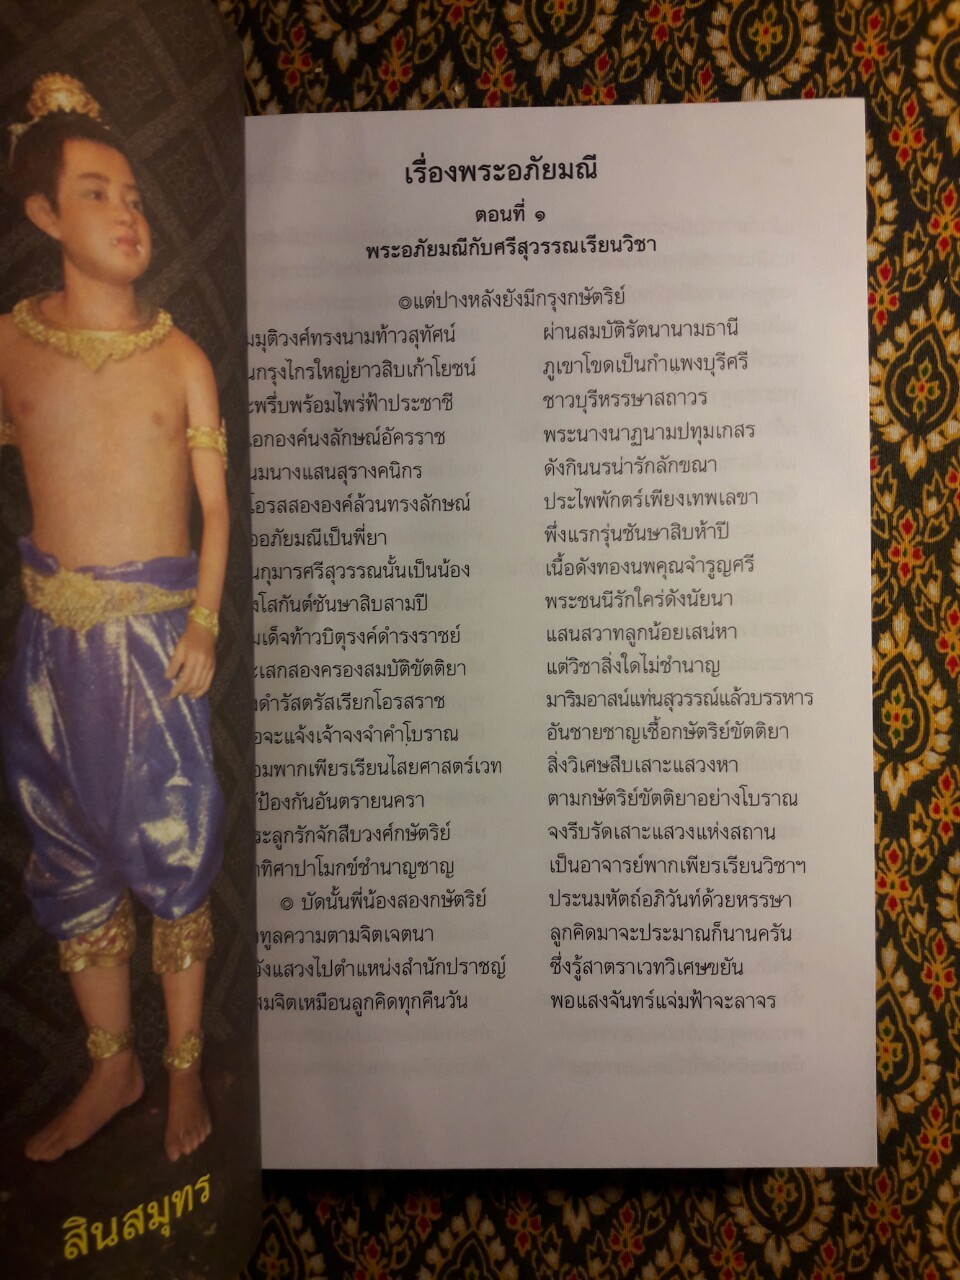 เรื่องพระอภัยมณี
ตอนที่ ๑
พระอภัยมณีกับศรีสุวรรณเรียนวิชา
๏แต่ปางหลังยังมีกรุงกษัตริย์
มมุติวงศ์ทรงนามท้าวสุทัศน์ ผ่านสมบัติรัตนานามธานี
นกรุงไกรใหญ่ยาวสิบเก้าโยชน์ ภูเขาโขดเป็นกำแพงบุรีศรี
ะพรึ่บพร้อมไพร่ฟ้าประชาชี ชาวบุรีหรรษาสถาวร
เอกองค์นงลักษณ์อัครราช พระนางนาฏนามปทุมเกสร
นมนางแสนสุรางคนิกร ดังกินนรน่ารักลักขณา
โอรสสององค์ล้วนทรงลักษณ์ ประไพพักตร์เพียงเทพเลขา
ออภัยมณีเป็นพี่ยา พึ่งแรกรุ่นชันษาสิบห้าปี
นกุมารศรีสุวรรณนั้นเป็นน้อง เนื้อดังทองนพคุณจำรูญศรี
งโสกันต์ชันษาสิบสามปี พระชนนีรักใคร่ดังนัยนา
มเด็จท้าวบิตุรงค์ดำรงราชย์ แสนสวาทลูกน้อยเสน่หา
ะเสกสองครองสมบัติขัตติยา แต่วิชาสิ่งใดไม่ชำนาญ
งดำรัสตรัสเรียกโอรสราช มาริมอาสน์แท่นสุวรรณ์แล้วบรรหาร
อจะแจ้งเจ้าจงจำคำโบราณ อันชายชาญเชื้อกษัตริย์ขัตติยา
อมพากเพียรเรียนไสยศาสตร์เวท สิ่งวิเศษสืบเสาะแสวงหา
ป้องกันอันตรายนครา ตามกษัตริย์ขัตติยาอย่างโบราณ
ระลูกรักจักสืบวงศ์กษัตริย์ จงรีบรัดเสาะแสวงแห่งสถาน
าทิศาปาโมกข์ชำนาญชาญ เป็นอาจารย์พากเพียรเรียนวิชาฯ
๏ บัดนั้นพี่น้องสองกษัตริย์ ประนมหัตถ์อภิวันท์ด้วยหรรษา
งทูลความตามจิตเจตนา ลูกคิดมาจะประมาณก็นานครัน
วังแสวงไปตำแหน่งสำนักปราชญ์ ซึ่งรู้สาตราเวทวิเศษขยัน
สมจิตเหมือนลูกคิดทุกคืนวัน พอแสงจันทร์แจ่มฟ้าจะลาจร
สินสมุทร